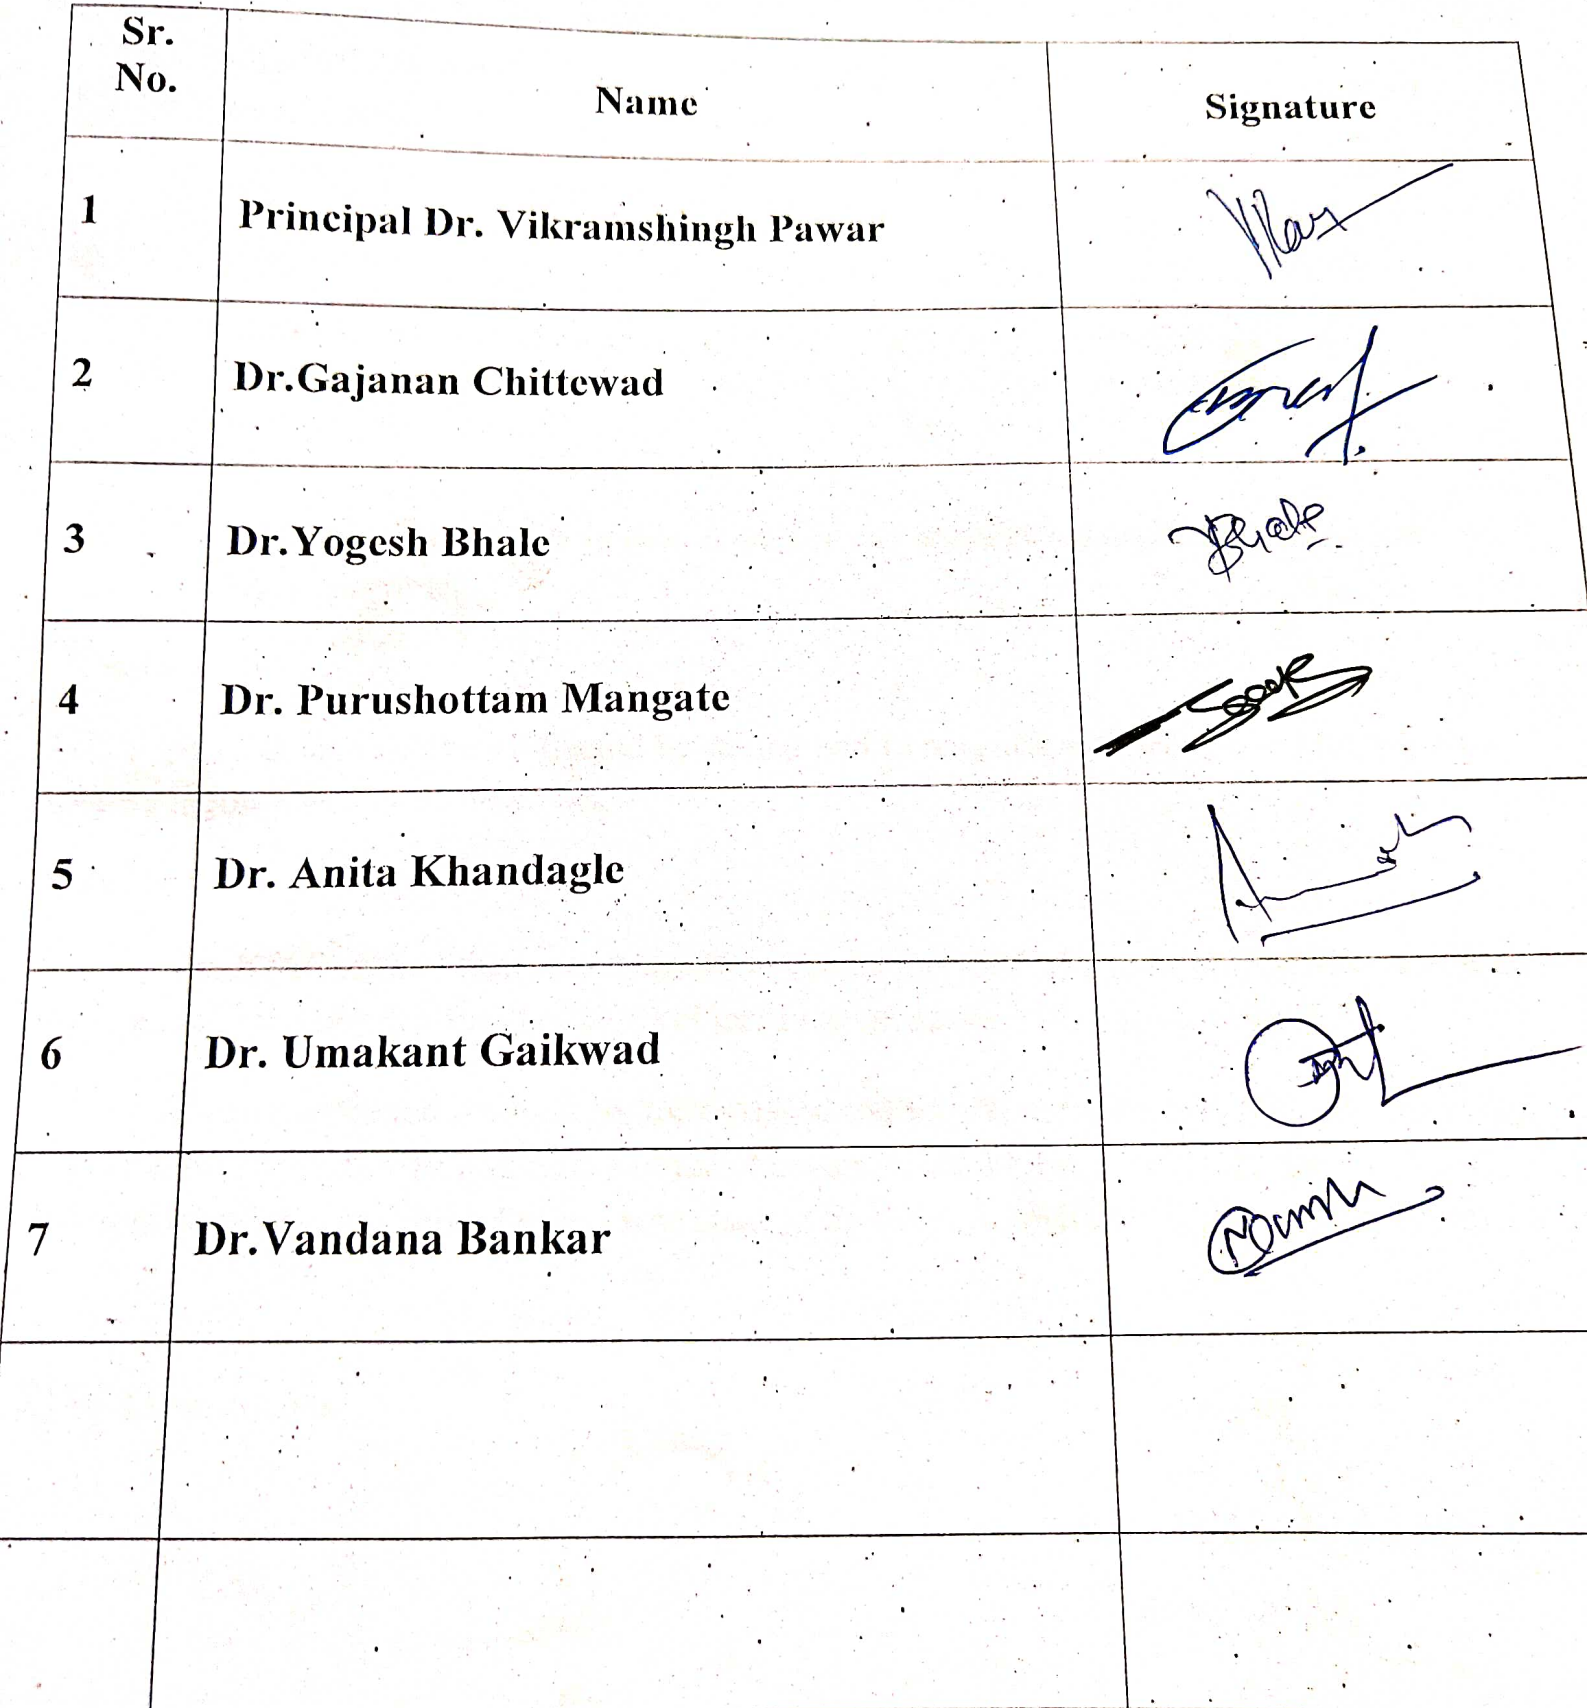 Sr.
No.
Name
Signature
1
Principal Dr. Vikramshingh Pawar
2
Dr.Gajanan Chittewad
3
Dr.Yogesh Bhale
4
Dr. Purushottam Mangate
5
Dr. Anita Khandagle
6
Dr. Umakant Gaikwad
7
Dr.Vandana Bankar